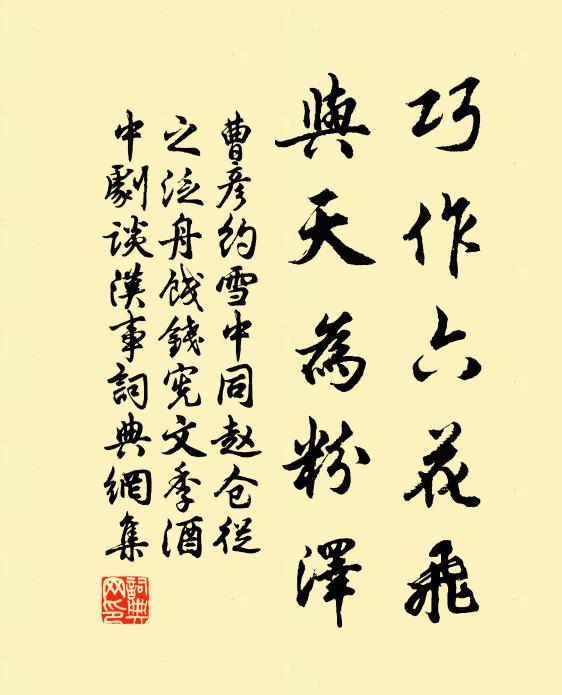 巧作六花飛
與天為粉澤
曹彦約雪中同赵仓從
之泛舟餞錢宪文季酒
中劇談漢事詞典網集
詞典网印